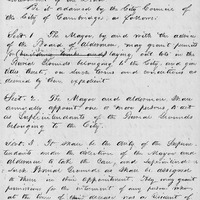 Be it ordained by the City Council of
the City of Cambridge, as follows:
Sect. 1. The Mayor by and with the advice
of the Board of Aldermen, may grant permits
for laying out lots in the
Burial Grounds belonging to the City, and give
titles thereto, on such terms and conditions as
deemed by them expedient.
Sect. 2. The Mayor and Aldermen shall
annually appoint one or more persons to act
as Superintendents of the Burial Grounds
belonging to the City.
Sect. 3. It shall be the duty of the Superin-
tendents under the direction of the Mayor and
Aldermen to take the Care, and Superintend
such Burial Grounds as shall be assigned
to them in their appointment. They may grant
permission for the interment of any person who
at the time of their decease was a resident of